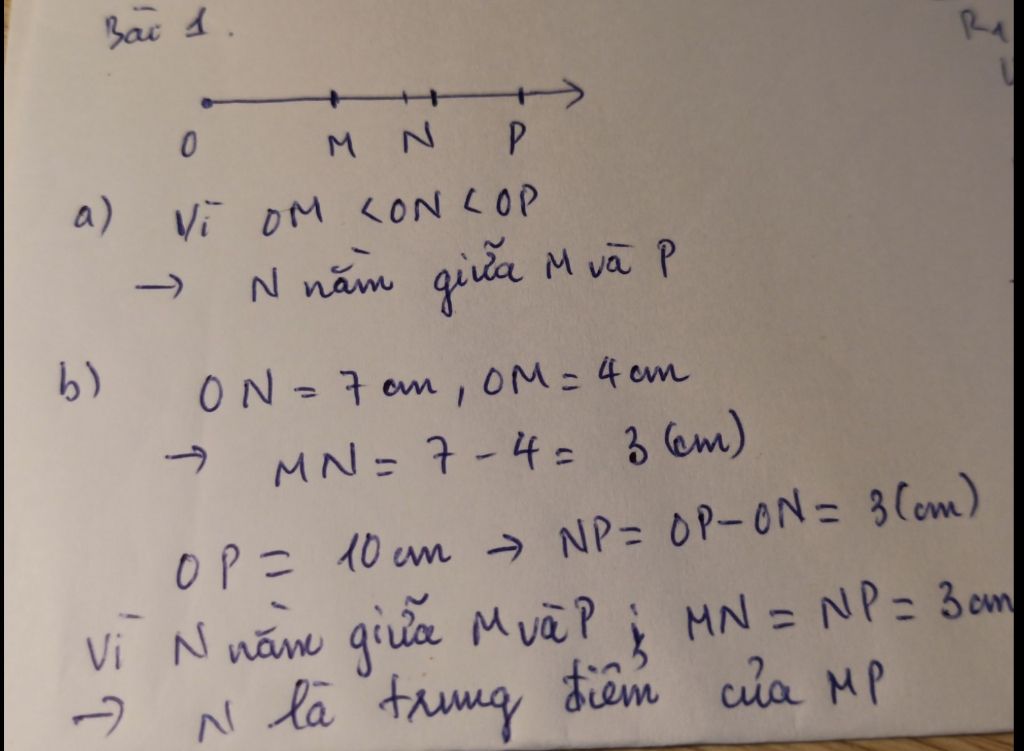 Bài 1.
R1
O M N P
a) Vì OM < ON < OP
→ N nằm giữa M và P
b) ON = 7 cm, OM = 4 cm
→ MN = 7 - 4 = 3 (cm)
OP = 10 cm → NP = OP - ON = 3 (cm)
Vì N nằm giữa M và P ; MN = NP = 3 cm
→ N là trung điểm của MP